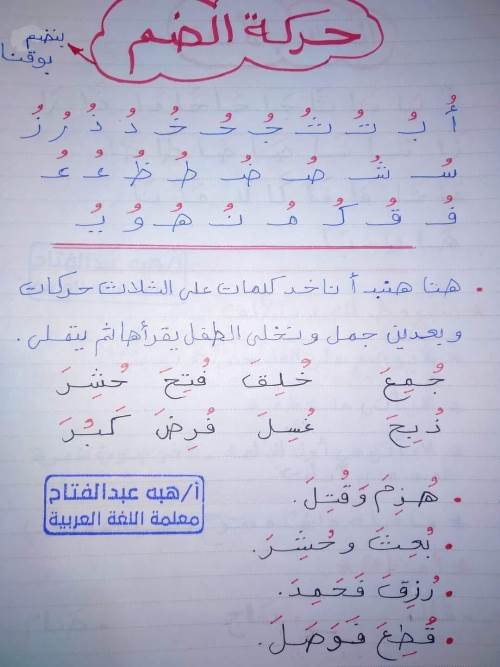 حركة الضم
بنضم
بوقنا
أُ بُ تُ ثُ جُ حُ خُ دُ ذُ رُ زُ
سُ شُ صُ ضُ طُ ظُ عُ غُ
فُ قُ كُ مُ نُ هُ وُ يُ
• هنا هنبدأ ناخد كلمات على الثلاث حركات
وبعدين جمل ونخلى الطفل يقرأها ثم يتملى.
جُمِعَ خُلِقَ فُتِحَ حُشِرَ
ذُبِحَ غُسِلَ فُرِضَ كَبُرَ
• هُزِمَ وَقُتِلَ.
• بُعِثَ و حُشِرَ.
• رُزِقَ فَحَمِدَ.
• قُطِعَ فَوَصَلَ.
أ/هبه عبدالفتاح
معلمة اللغة العربية